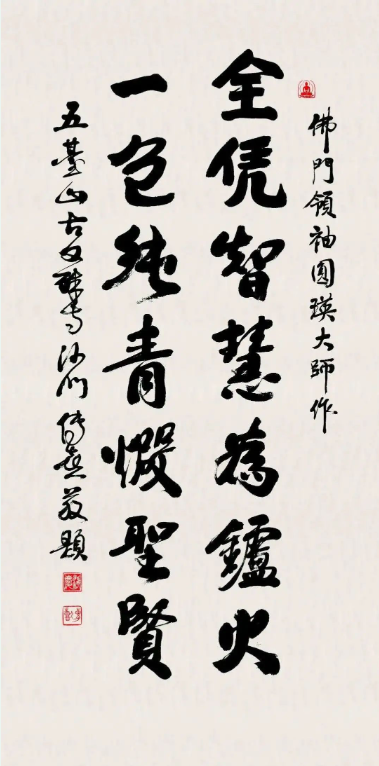 佛門領袖圓瑛大師作
全凭智慧為鑪火
一色純青煅聖賢
五臺山古文殊寺沙門傳敬題